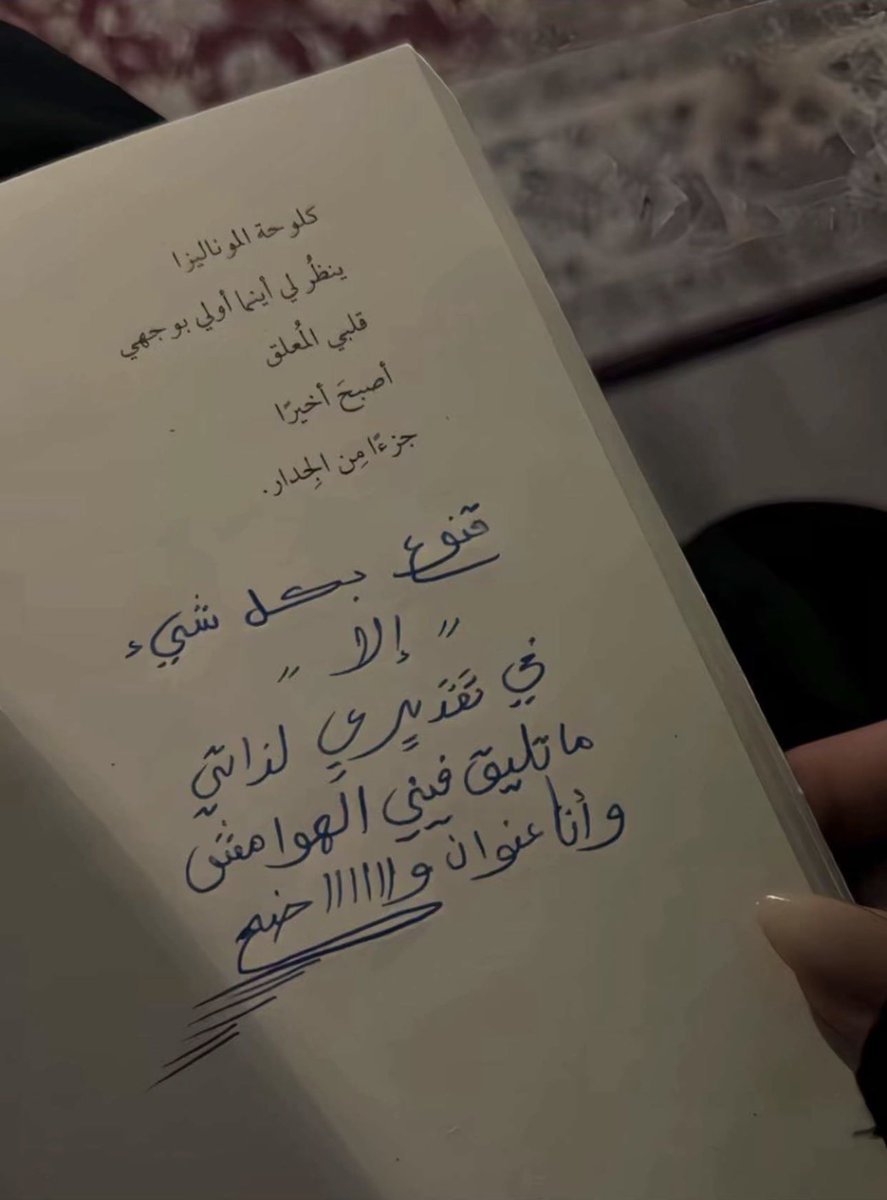 كلوحة الموناليزا
ينظُر لي أينما أولي بوجهي
قلبي المُعلق
أصبحَ أخيرًا
جزءًا مِن الجِدار.
قنوع بكل شيء
" إلا "
في تقديري لذاتي
ما تليق فيني الهوامش
وأنا عنوان واااااااضح